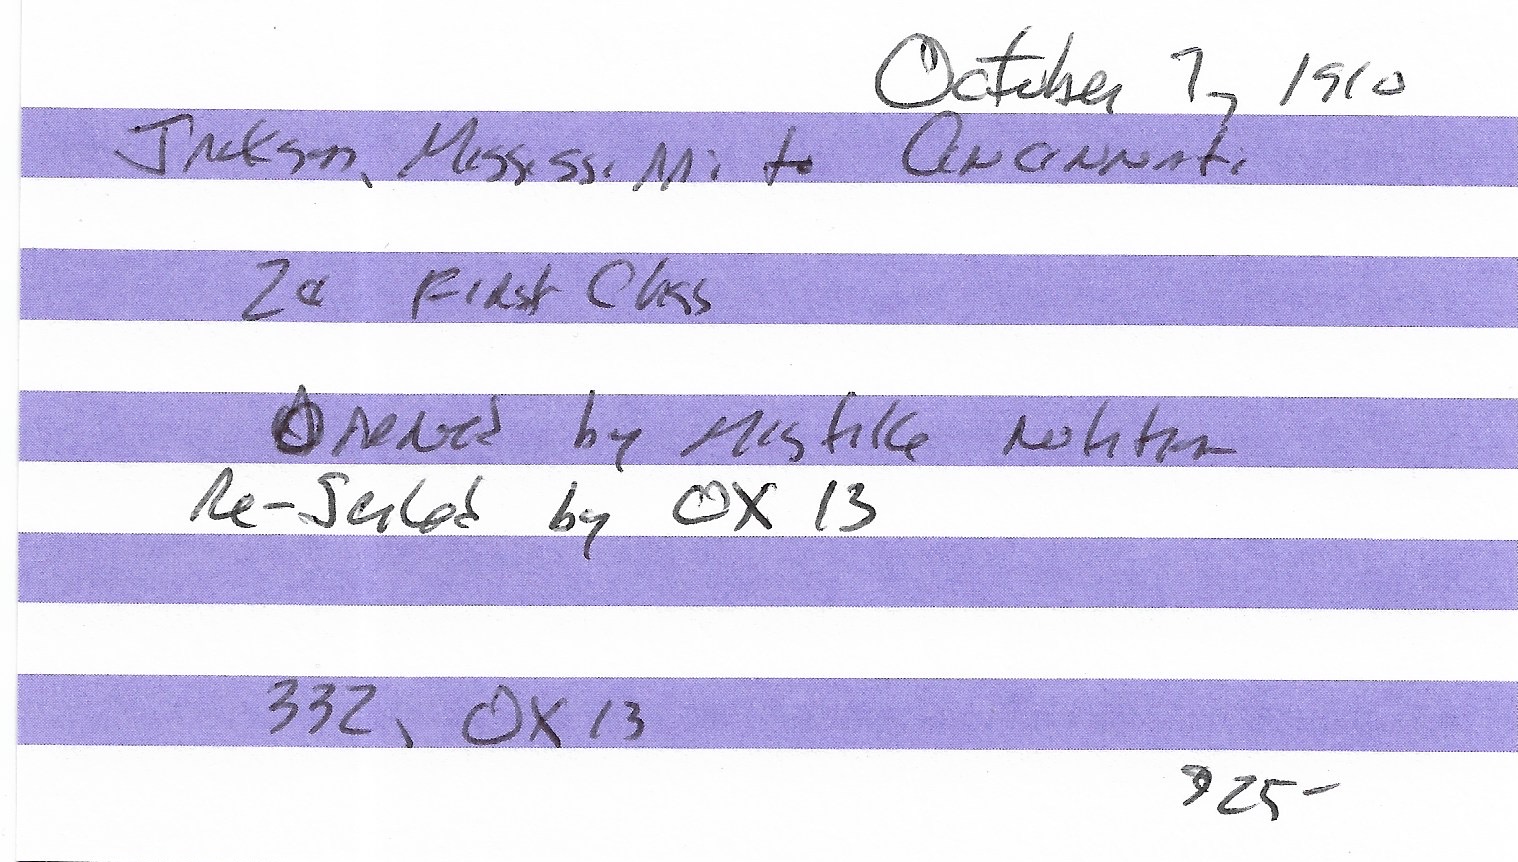 October 7, 1910
Jackson, Mississippi to Cincinnati
2¢ First Class
Opened by Mistake Notation
Re-Sealed by OX 13
332, OX 13
$25-